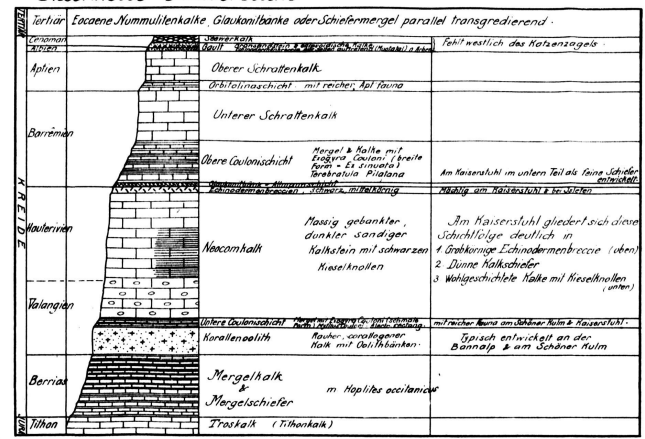 TERTIÄR
Tertiär Eocaene Nummulitenkalke, Glaukonitbänke oder Schiefermergel parallel transgredierend.
KREIDE
Cenoman Seewerkalk
Albien Gault
Fehlt westlich des Katzenzagels.
Aptien Oberer Schrattenkalk
Orbitolinaschicht mit reicher Apt fauna
Barrêmien Unterer Schrattenkalk
Obere Coulonischicht
Mergel & Kalke mit
Exogyra Couloni (breite
Form = Ex sinuata)
Terebratula Pilatana
Am Kaiserstuhl im untern Teil als feine Schiefer
entwickelt.
Echinodermenbreccien, schwarz, mittelkörnig
Mächtig am Kaiserstuhl & bei Isleten
Hauterivien Neocomkalk
Massig gebankter,
dunkler sandiger
Kalkstein mit schwarzen
Kieselknollen
Am Kaiserstuhl gliedert sich diese
Schichtfolge deutlich in
1. Grobkörnige Echinodermenbreccie (oben)
2 Dünne Kalkschiefer
3 Wohlgeschichtete Kalke mit Kieselknollen
(unten)
Valangien
Untere Coulonischicht
mit reicher Fauna am Schöner Kulm & Kaiserstuhl.
Korallenoolith
Rauher, corallogener
Kalk mit Oolithbänken.
Typisch entwickelt an der
Bannalp & am Schöner Kulm
Berrias
Mergelkalk
&
Mergelschiefer
m Hoplites occitanicus
JURA
Tithon Troskalk (Tithonkalk)